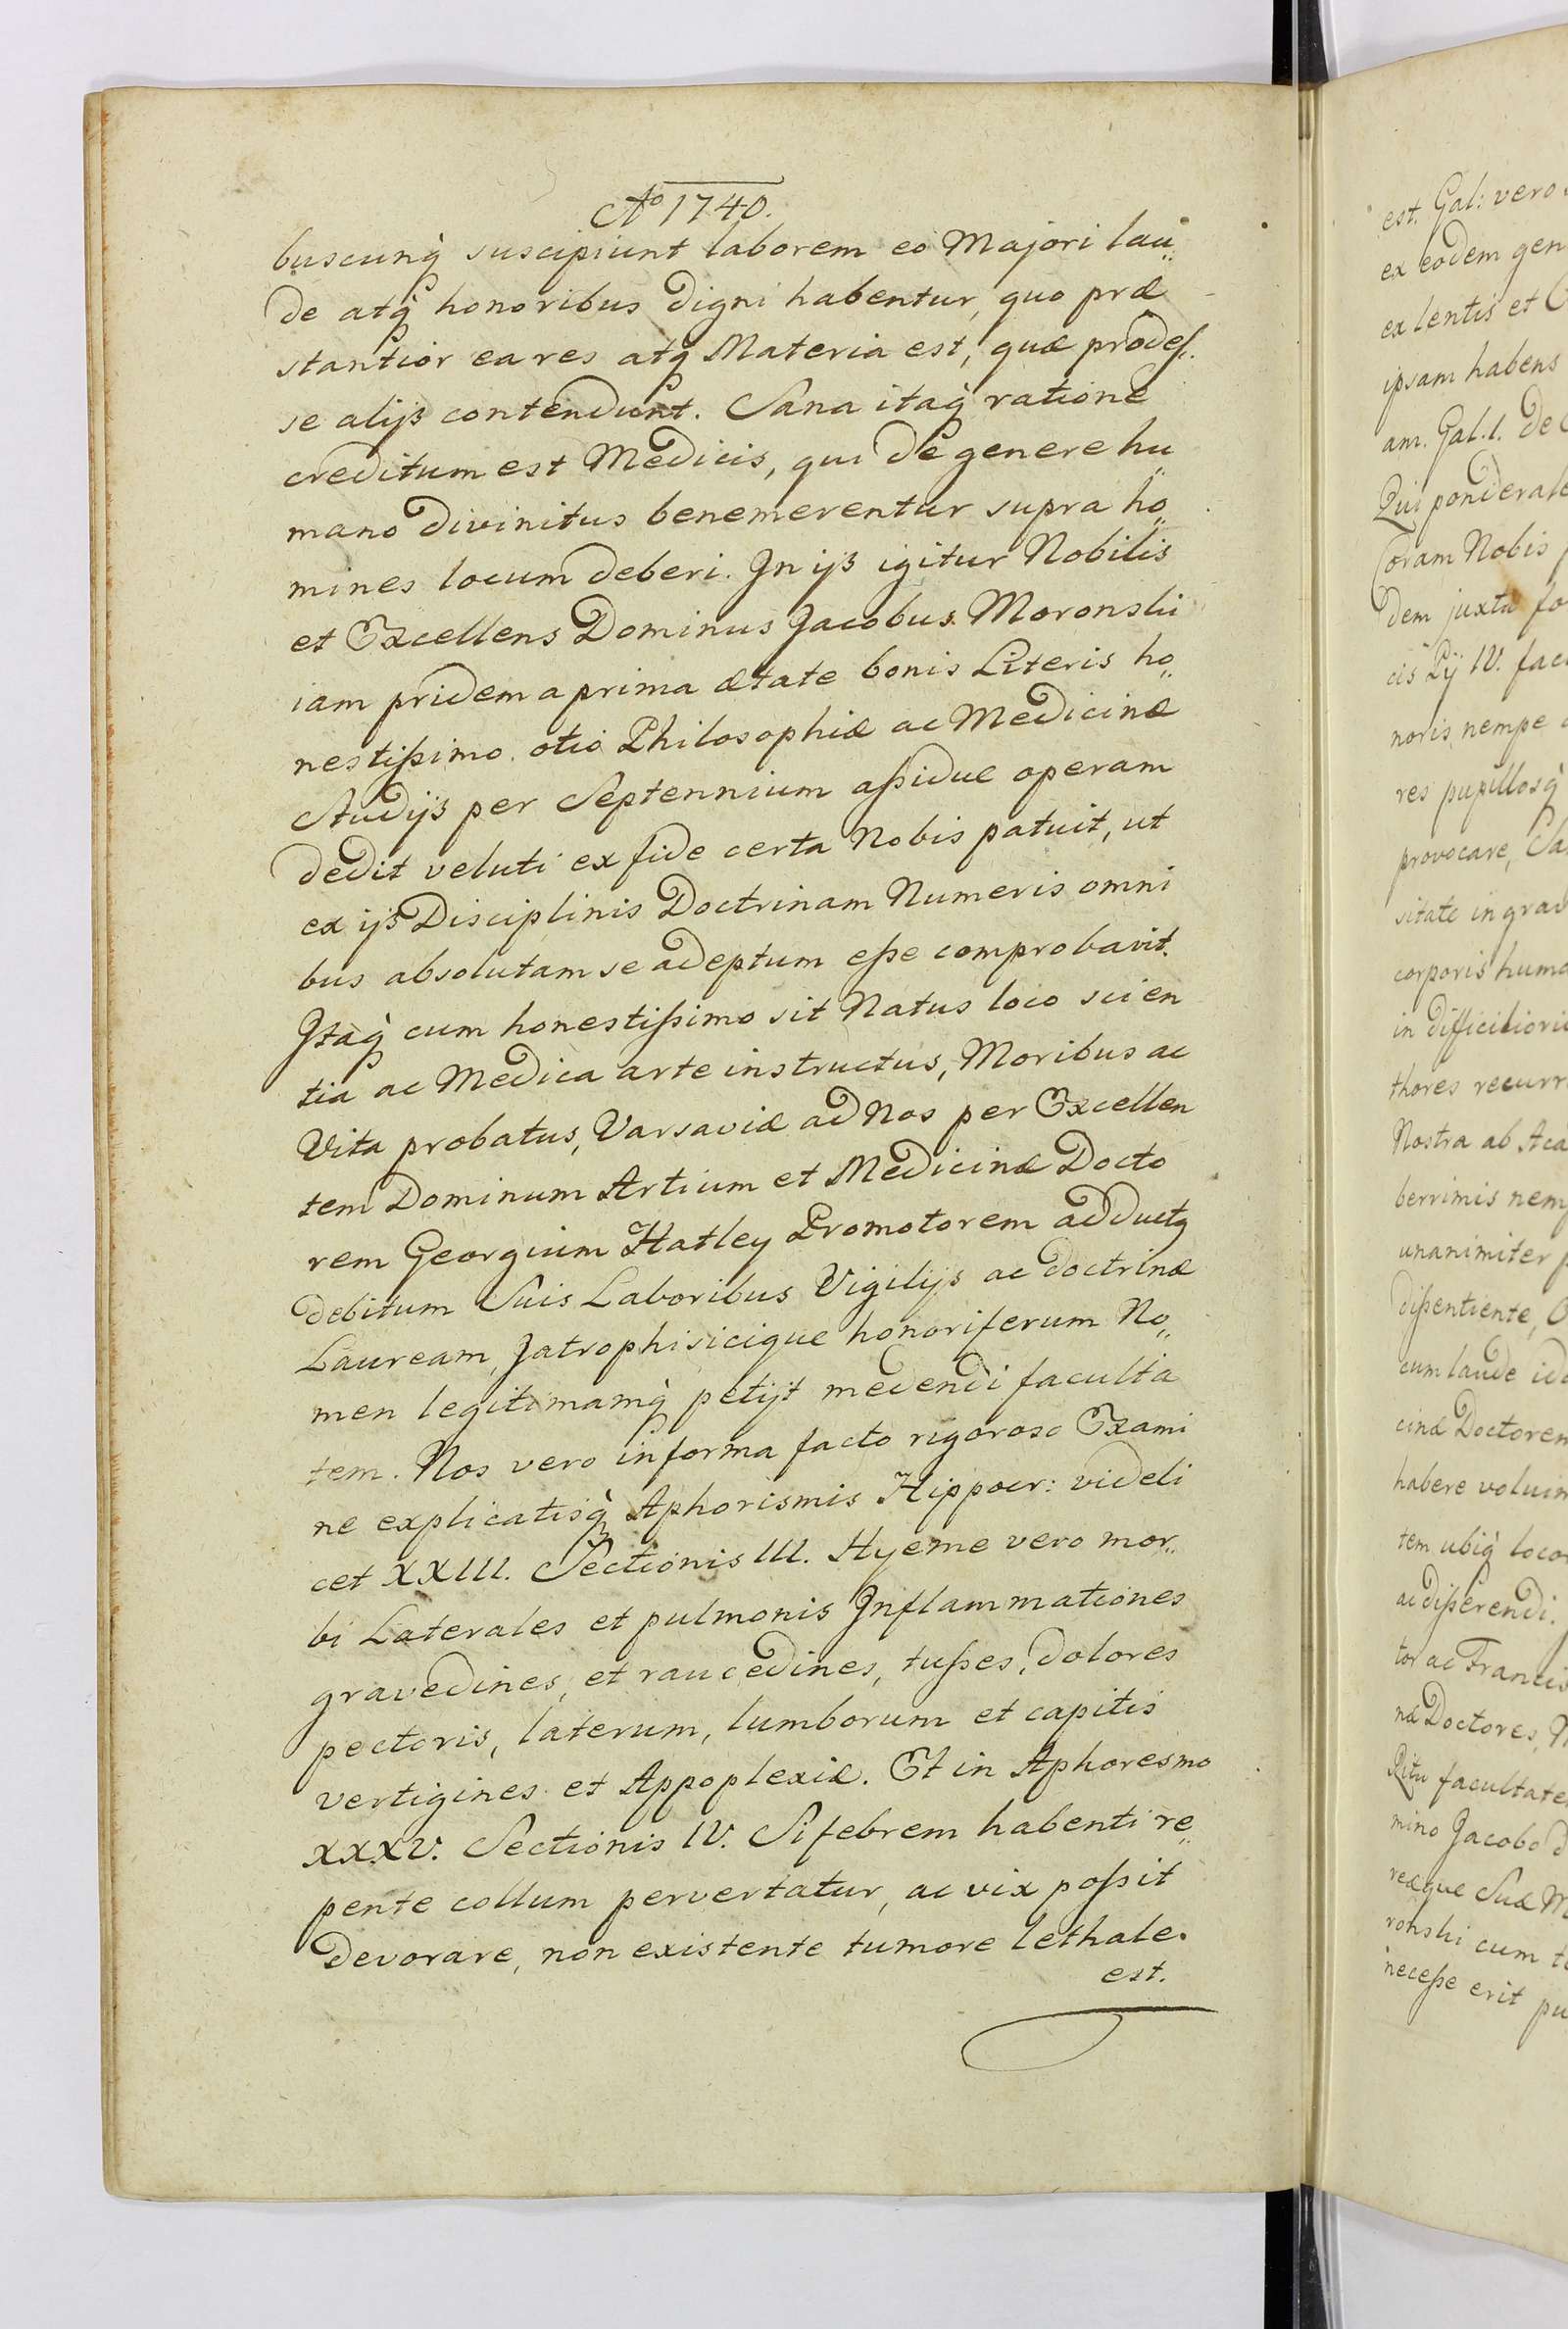 Aº 1740.
buscunq̀ suscipiunt laborem eo Majori lau„
de atq̀ honoribus digni habentur, quo præ
stantior ea res atq̀ Materia est, quæ prodeſ„
se alijs contendunt. Sana itaq̀ ratione
creditum est Medicis, qui de genere hu„
mano divinitus benemerentur supra ho„
mines locum deberi. In ijs igitur Nobilis
et Excellens Dominus Jacobus Moronski
iam pridem a prima ætate bonis Literis ho„
nestißimo otio Philosophiæ ac Medicinæ
Studijs per Septennium aßidue operam
dedit veluti ex fide certa Nobis patuit, ut
ex ijs Disciplinis Doctrinam Numeris omni
bus absolutam se adeptum eße comprobavit.
Itaq̀ cum honestißimo sit Natus loco scien
tia ac Medica arte instructus, Moribus ac
Vita probatus, Varsaviæ ad Nos per Excellen
tem Dominum Artium et Medicinæ Docto
rem Georgium Hatley Promotorem adductq
debitum Suis Laboribus Vigilijs ac doctrinæ
Lauream, Jatrophisicique honoriferum No„
men legitimamq̀ petijt medendi faculta
tem. Nos vero in forma facto rigoroso Exami
ne explicatisq̀ Aphorismis Hippocr: videli
cet XXIII. Sectionis III. Hyeme vero mor„
bi Laterales et pulmonis Inflammationes
gravedines, et raucedines, tußes, dolores
pectoris, laterum, lumborum et capitis
vertigines et Appoplexiæ. Et in Aphoresmo
XXXV. Sectionis IV. Si febrem habenti re„
pente collum pervertatur, ac vix poßit
devorare, non existente tumore lethale.
est.
est. Gal: vero
ex eodem gen
ex lentis et
ipsam habens
am. Gal. l. de
Qui ponderate
Coram Nobis
dem juxta fo
cis Pij IV. fac
noris, nempe
res pupillosq̀
provocare, Sa
sitate in grav
corporis huma
in difficiliori
thores recurr
Nostra ab Aca
berrimis nem
unanimiter p
dißentiente,
cum laude id
cinæ Doctorem
habere volum
tem ubiq̀ loco
ac dißerendi.
tor ac Francis
næ Doctores,
Ritu facultate
mino Jacobo d
reæque Suæ M
ronski cum t
neceße erit pu